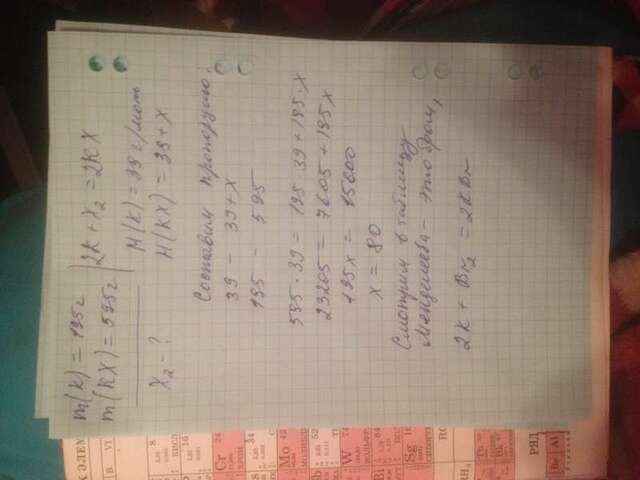 m(K) = 195г
m(KX) = 595г
X₂ - ?
2K + X₂ = 2KX
M(K) = 39 г/моль
M(KX) = 39 + X
Составим пропорцию:
39 - 39+X
195 - 595
595 · 39 = 195 · 39 + 195 · X
23205 = 7605 + 195X
195X = 15600
X = 80
Смотрим в таблицу
Менделеева - это бром,
2K + Br₂ = 2KBr
ЭЛЕМ
B VI
8
16
Cr 24
34
Mo 42
52
W 74
84
Sg
РЯД